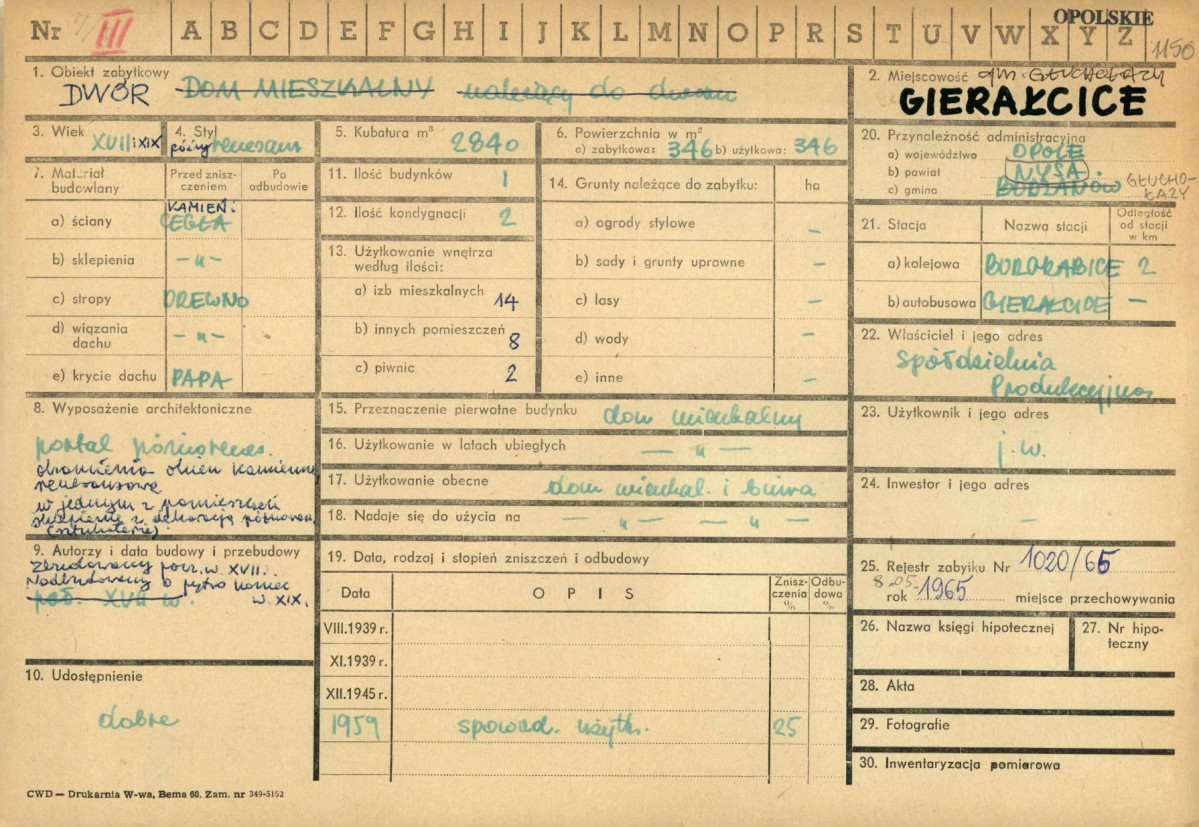 OPOLSKIE
Nr 7/III A B C D E F G H I J K L M N O P R S T U V W X Y Z 1150
1. Obiekt zabytkowy
DWÓR DOM MIESZKALNY należący do dworu
2. Miejscowość gm. GŁUCHOŁAZY
GIERAŁCICE
3. Wiek XVII i XIX
4. Styl
późny renesans
5. Kubatura m³ 2840
6. Powierzchnia w m²
a) zabytkowa: 346 b) użytkowa: 346
20. Przynależność administracyjna
a) województwo OPOLE
b) powiat NYSA
c) gmina BUDZANÓW GŁUCHO-
ŁAZY
7. Materiał budowlany
Przed znisz-
czeniem
Po
odbudowie
a) ściany KAMIEŃ i
CEGŁA
b) sklepienia -„-
c) stropy DREWNO
d) wiązania
dachu -„-
e) krycie dachu PAPA
11. Ilość budynków 1
12. Ilość kondygnacji 2
13. Użytkowanie wnętrza
według ilości:
a) izb mieszkalnych 14
b) innych pomieszczeń 8
c) piwnic 2
14. Grunty należące do zabytku: ha
a) ogrody stylowe –
b) sady i grunty uprawne –
c) lasy –
d) wody –
e) inne –
21. Stacja
Nazwa stacji
Odległość
od stacji
w km
a) kolejowa BURGRABICE 2
b) autobusowa GIERAŁCICE –
22. Właściciel i jego adres
Spółdzielnia
Produkcyjna
8. Wyposażenie architektoniczne
portal późnorenes.
obramienia okien kamienne
renesansowe
w jednym z pomieszczeń
sklepienie z dekoracją późnoren.
(sztukateria)
15. Przeznaczenie pierwotne budynku dom mieszkalny
16. Użytkowanie w latach ubiegłych – „ –
17. Użytkowanie obecne dom mieszkal. i biura
18. Nadaje się do użycia na – „ – – „ –
23. Użytkownik i jego adres
j.w.
24. Inwestor i jego adres
–
9. Autorzy i data budowy i przebudowy
Zbudowany pocz. w. XVII.
Nadbudowany o piętro koniec
poł. XVII w. w. XIX.
19. Data, rodzaj i stopień zniszczeń i odbudowy
Data
O P I S
Znisz-
czenia
%
Odbu-
dowa
%
VIII.1939 r.
XI.1939 r.
XII.1945 r.
1959 spowod. użytk. 25
25. Rejestr zabytku Nr 1020/65
8-05-
rok 1965 miejsce przechowywania
26. Nazwa księgi hipotecznej
27. Nr hipo-
teczny
10. Udostępnienie
dobre
28. Akta
29. Fotografie
30. Inwentaryzacja pomiarowa
CWD — Drukarnia W-wa, Bema 60. Zam. nr 349-5162